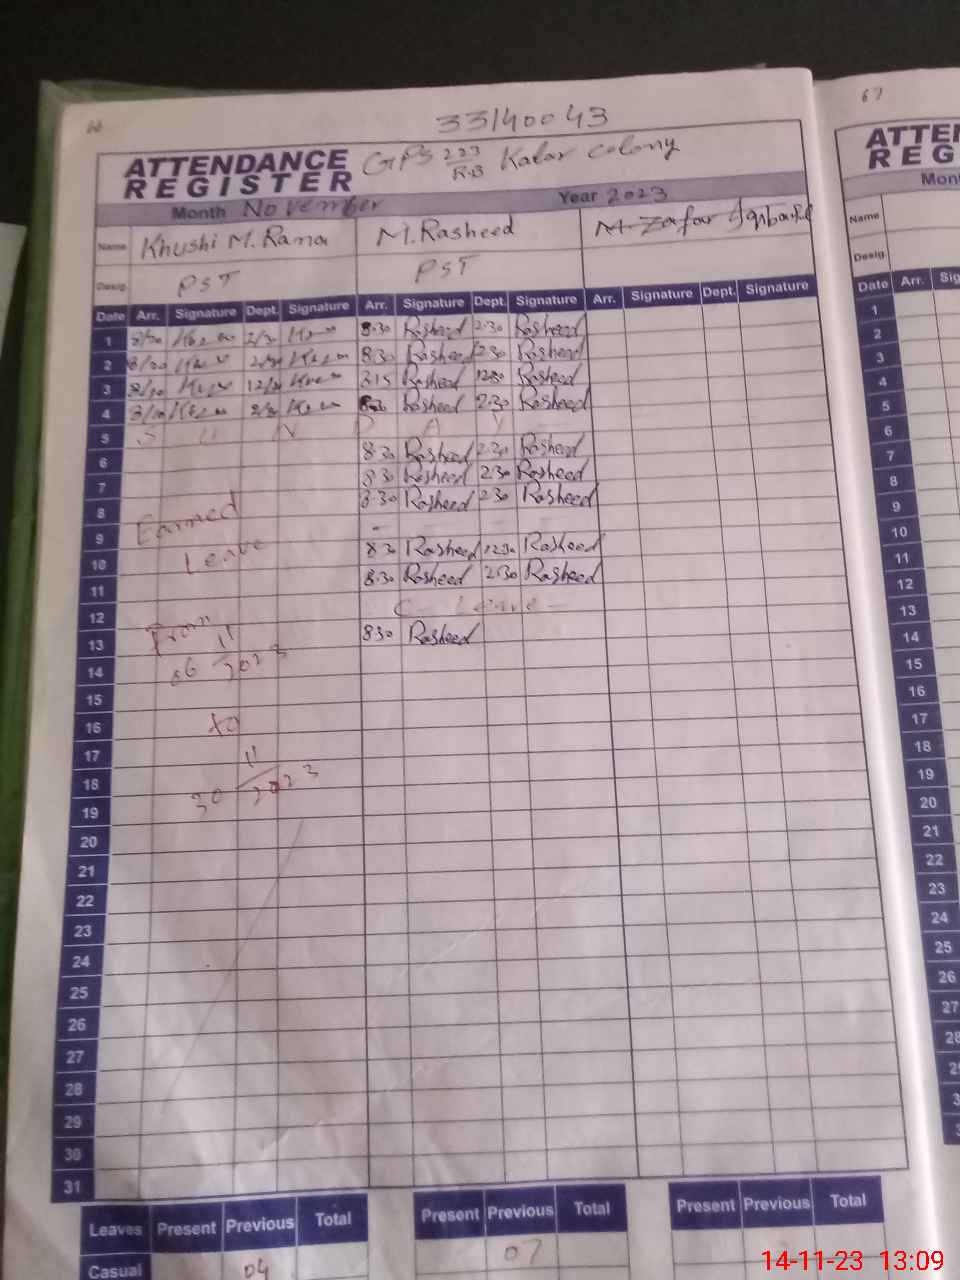 66
33140043
67
ATTENDANCE
REGISTER
GPS 223 R.B Kalar colony
ATTEN
REG
Month November Year 2023
Mon
Name Khushi M. Rana M. Rasheed M. Zafar Iqbal
Name
Desig. PST PST
Desig.
Date Arr. Signature Dept. Signature Arr. Signature Dept. Signature Arr. Signature Dept. Signature
Date Arr. Sig
1 8:30 Rasheed 2:30 Rasheed
2 8:30 Rasheed 2:30 Rasheed
3 Rasheed 12:30 Rasheed
4 8:30 Rasheed 2:30 Rasheed
5 S U N D A Y
6 8:30 Rasheed 2:30 Rasheed
7 8:30 Rasheed 2:30 Rasheed
8 Earned 8:30 Rasheed 2:30 Rasheed
9 Leave -
10 8:30 Rasheed 12:30 Rasheed
11 8:30 Rasheed 2:30 Rasheed
12 From C - Leave -
13 06 11/2023 8:30 Rasheed
14
15
16 to
17
18 30 11/2023
19
20
21
22
23
24
25
26
27
28
29
30
31
1
2
3
4
5
6
7
8
9
10
11
12
13
14
15
16
17
18
19
20
21
22
23
24
25
26
27
28
Leaves Present Previous Total Present Previous Total Present Previous Total
Casual 04 07
14-11-23 13:09